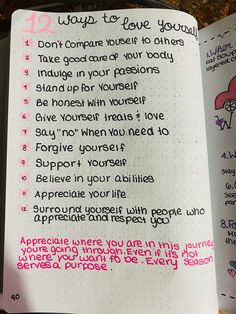 12 Ways to love Yourself
1 Don't Compare Yourself to others
2 Take good care of your body
3 Indulge in your passions
4 Stand up for Yourself
5 Be honest with Yourself
6 Give Yourself treats & love
7 Say "no" when you need to
8 Forgive yourself
9 Support yourself
10 Believe in your abilities
11 Appreciate your life
12 Surround yourself with people who
appreciate and respect you
Appreciate where you are in this journey
you're going through. Even if it's not
where you want to be. Every season
serves a purpose.
40